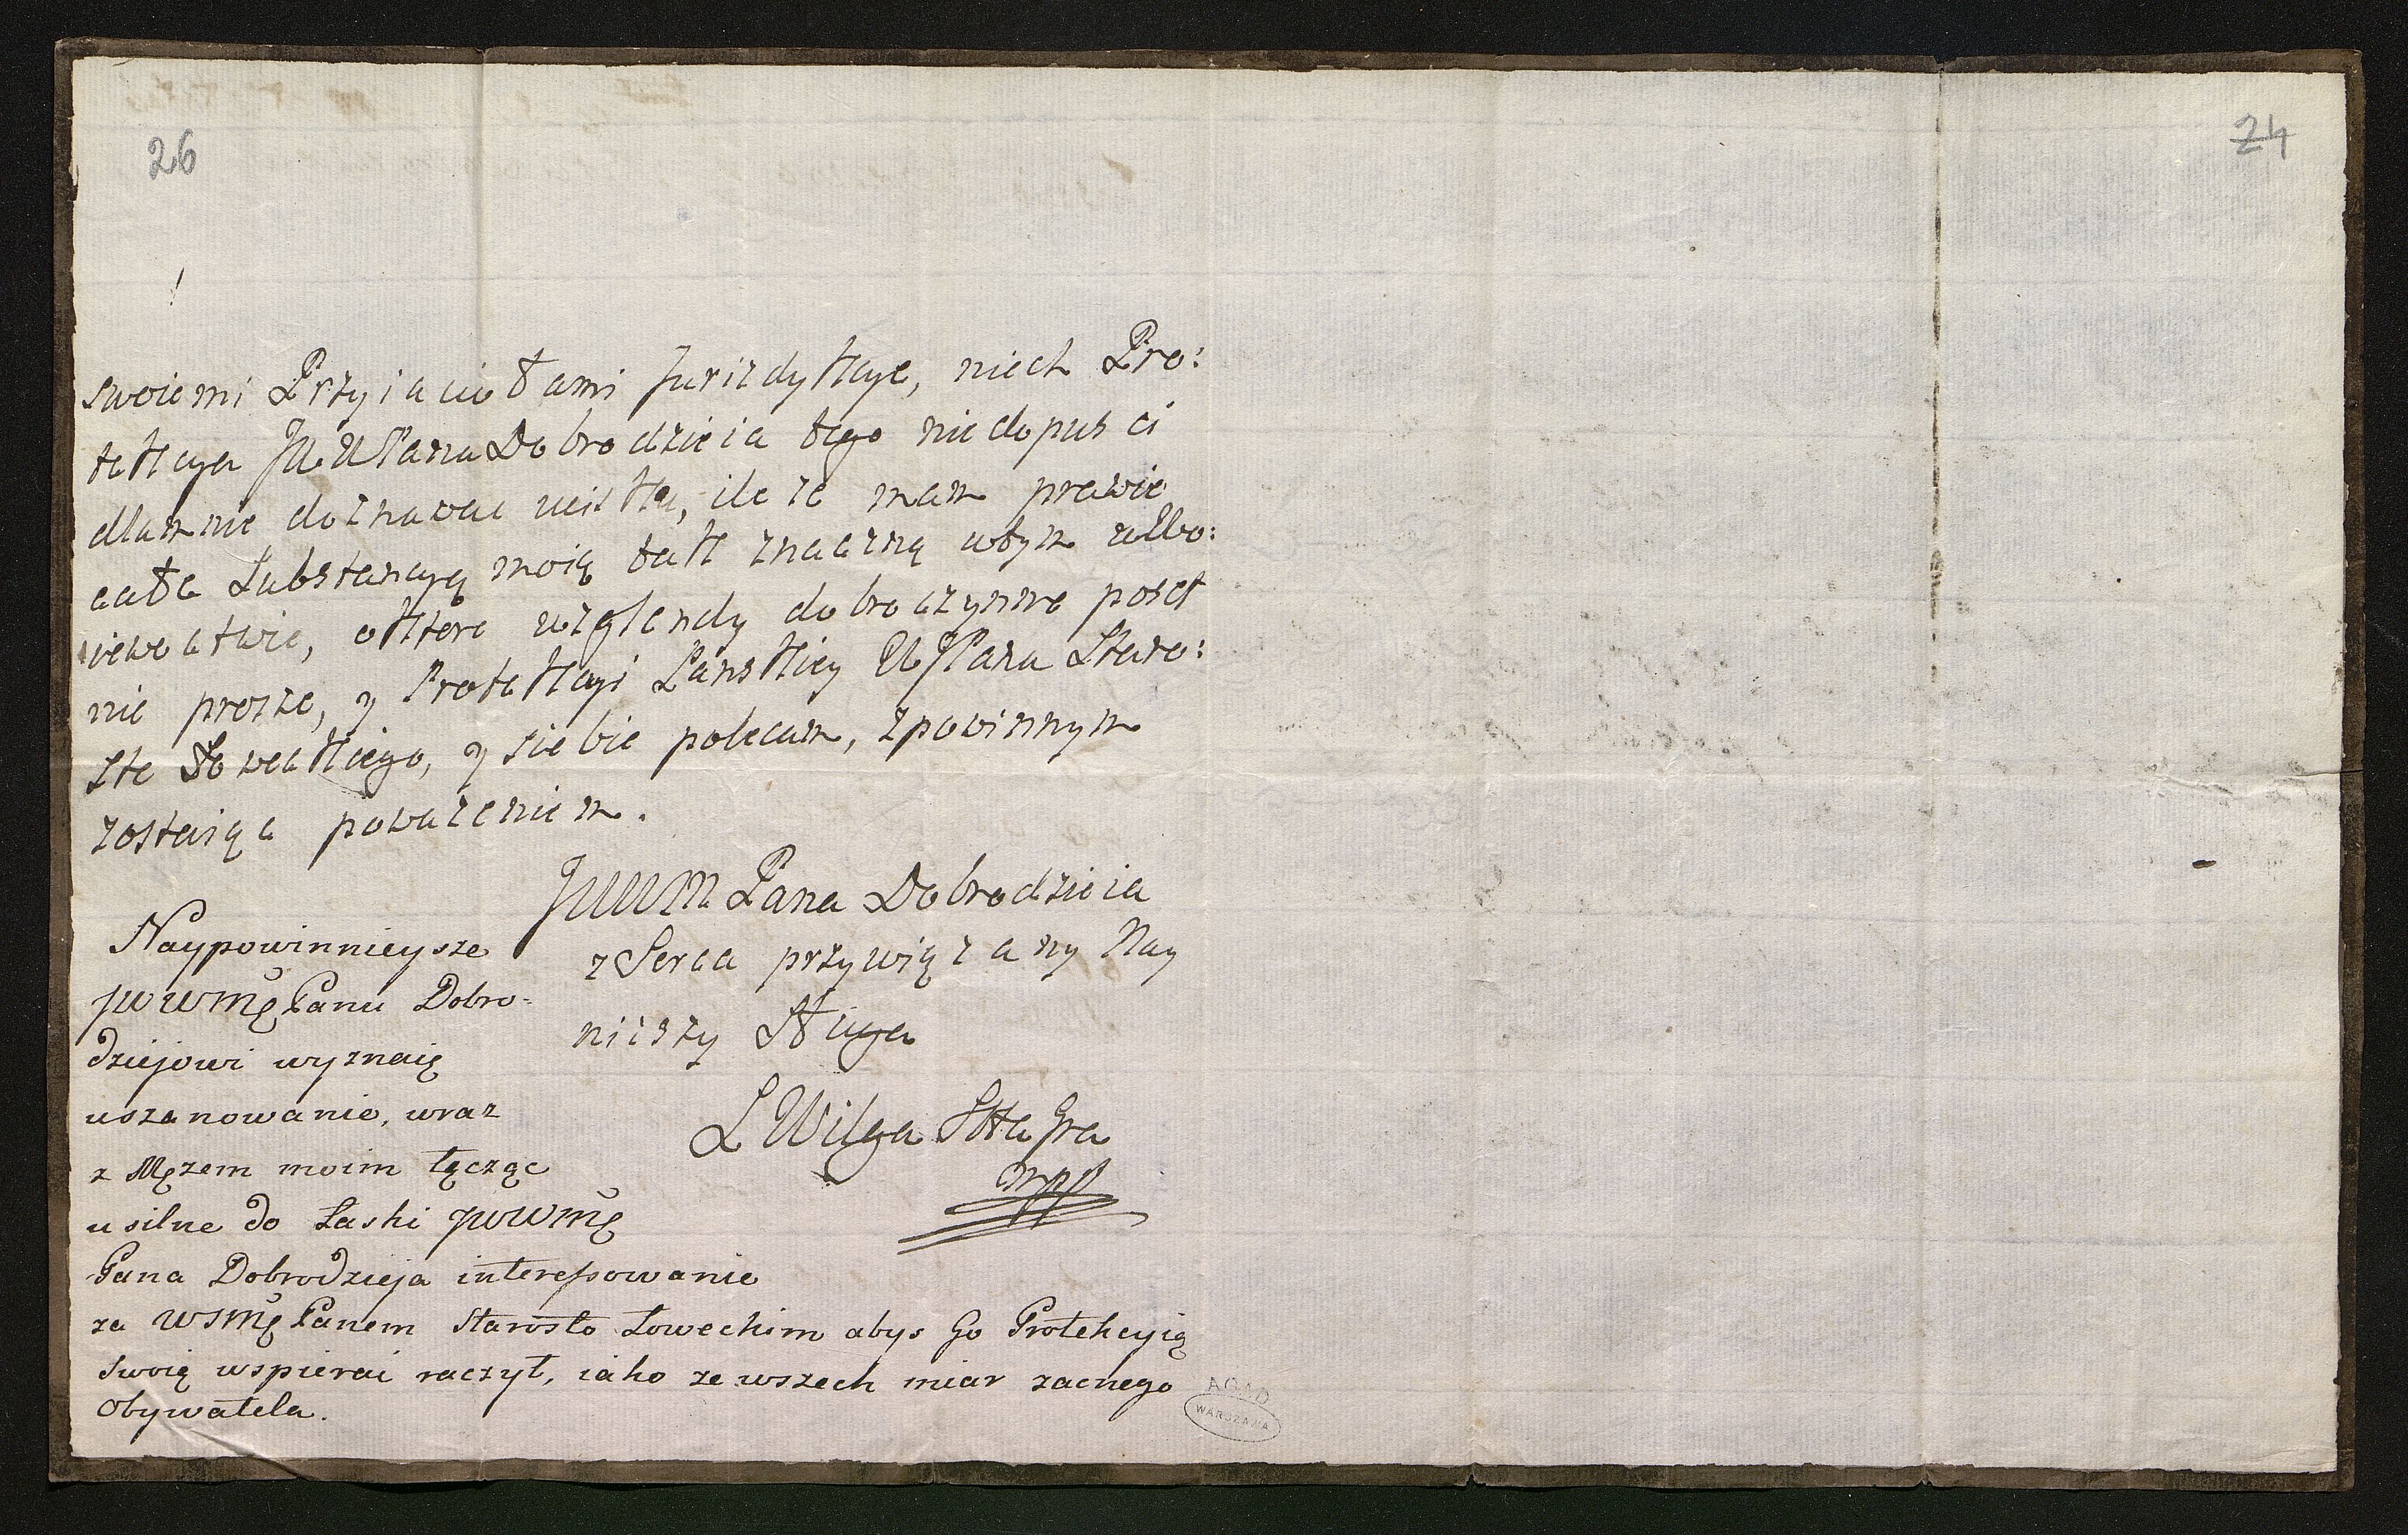 26
24
swoiemi Przyiaciołami Jurizdykcye, niech Pro:
tekcya JWWPana Dobrodzieia tego niedopusci
dlamnie doznawac ucisku, ile ze mam prawie
cała Substancyą moią tak znaczną wtym wWo:
iewoctwie, oktore względy dobroczynne
nie prosze, y Protekcyi Panskiey WJPana Staro:
ste Łoweckiego, y siebie polecam, zpowinnym
zostaiąc powazeniem.
JWWM Pana Dobrodzieia
z Serca przywiązany Nay
niszy Sługa
L Wilga Stta Gra
mpp
Naypowinnieysze
JWWMę Panu Dobro-
dziejowi wyznaię
uszanowanie, wraz
z Mężem moim łącząc
usilne do Łaski JWWMę
Pana Dobrodzieja interessowanie
za WJMę Panem Starosto Łoweckim abys Go Protekcyią
swoią wspierać raczył, iako ze wszech miar zacnego
Obywatela.
AGAD
WARSZAWA